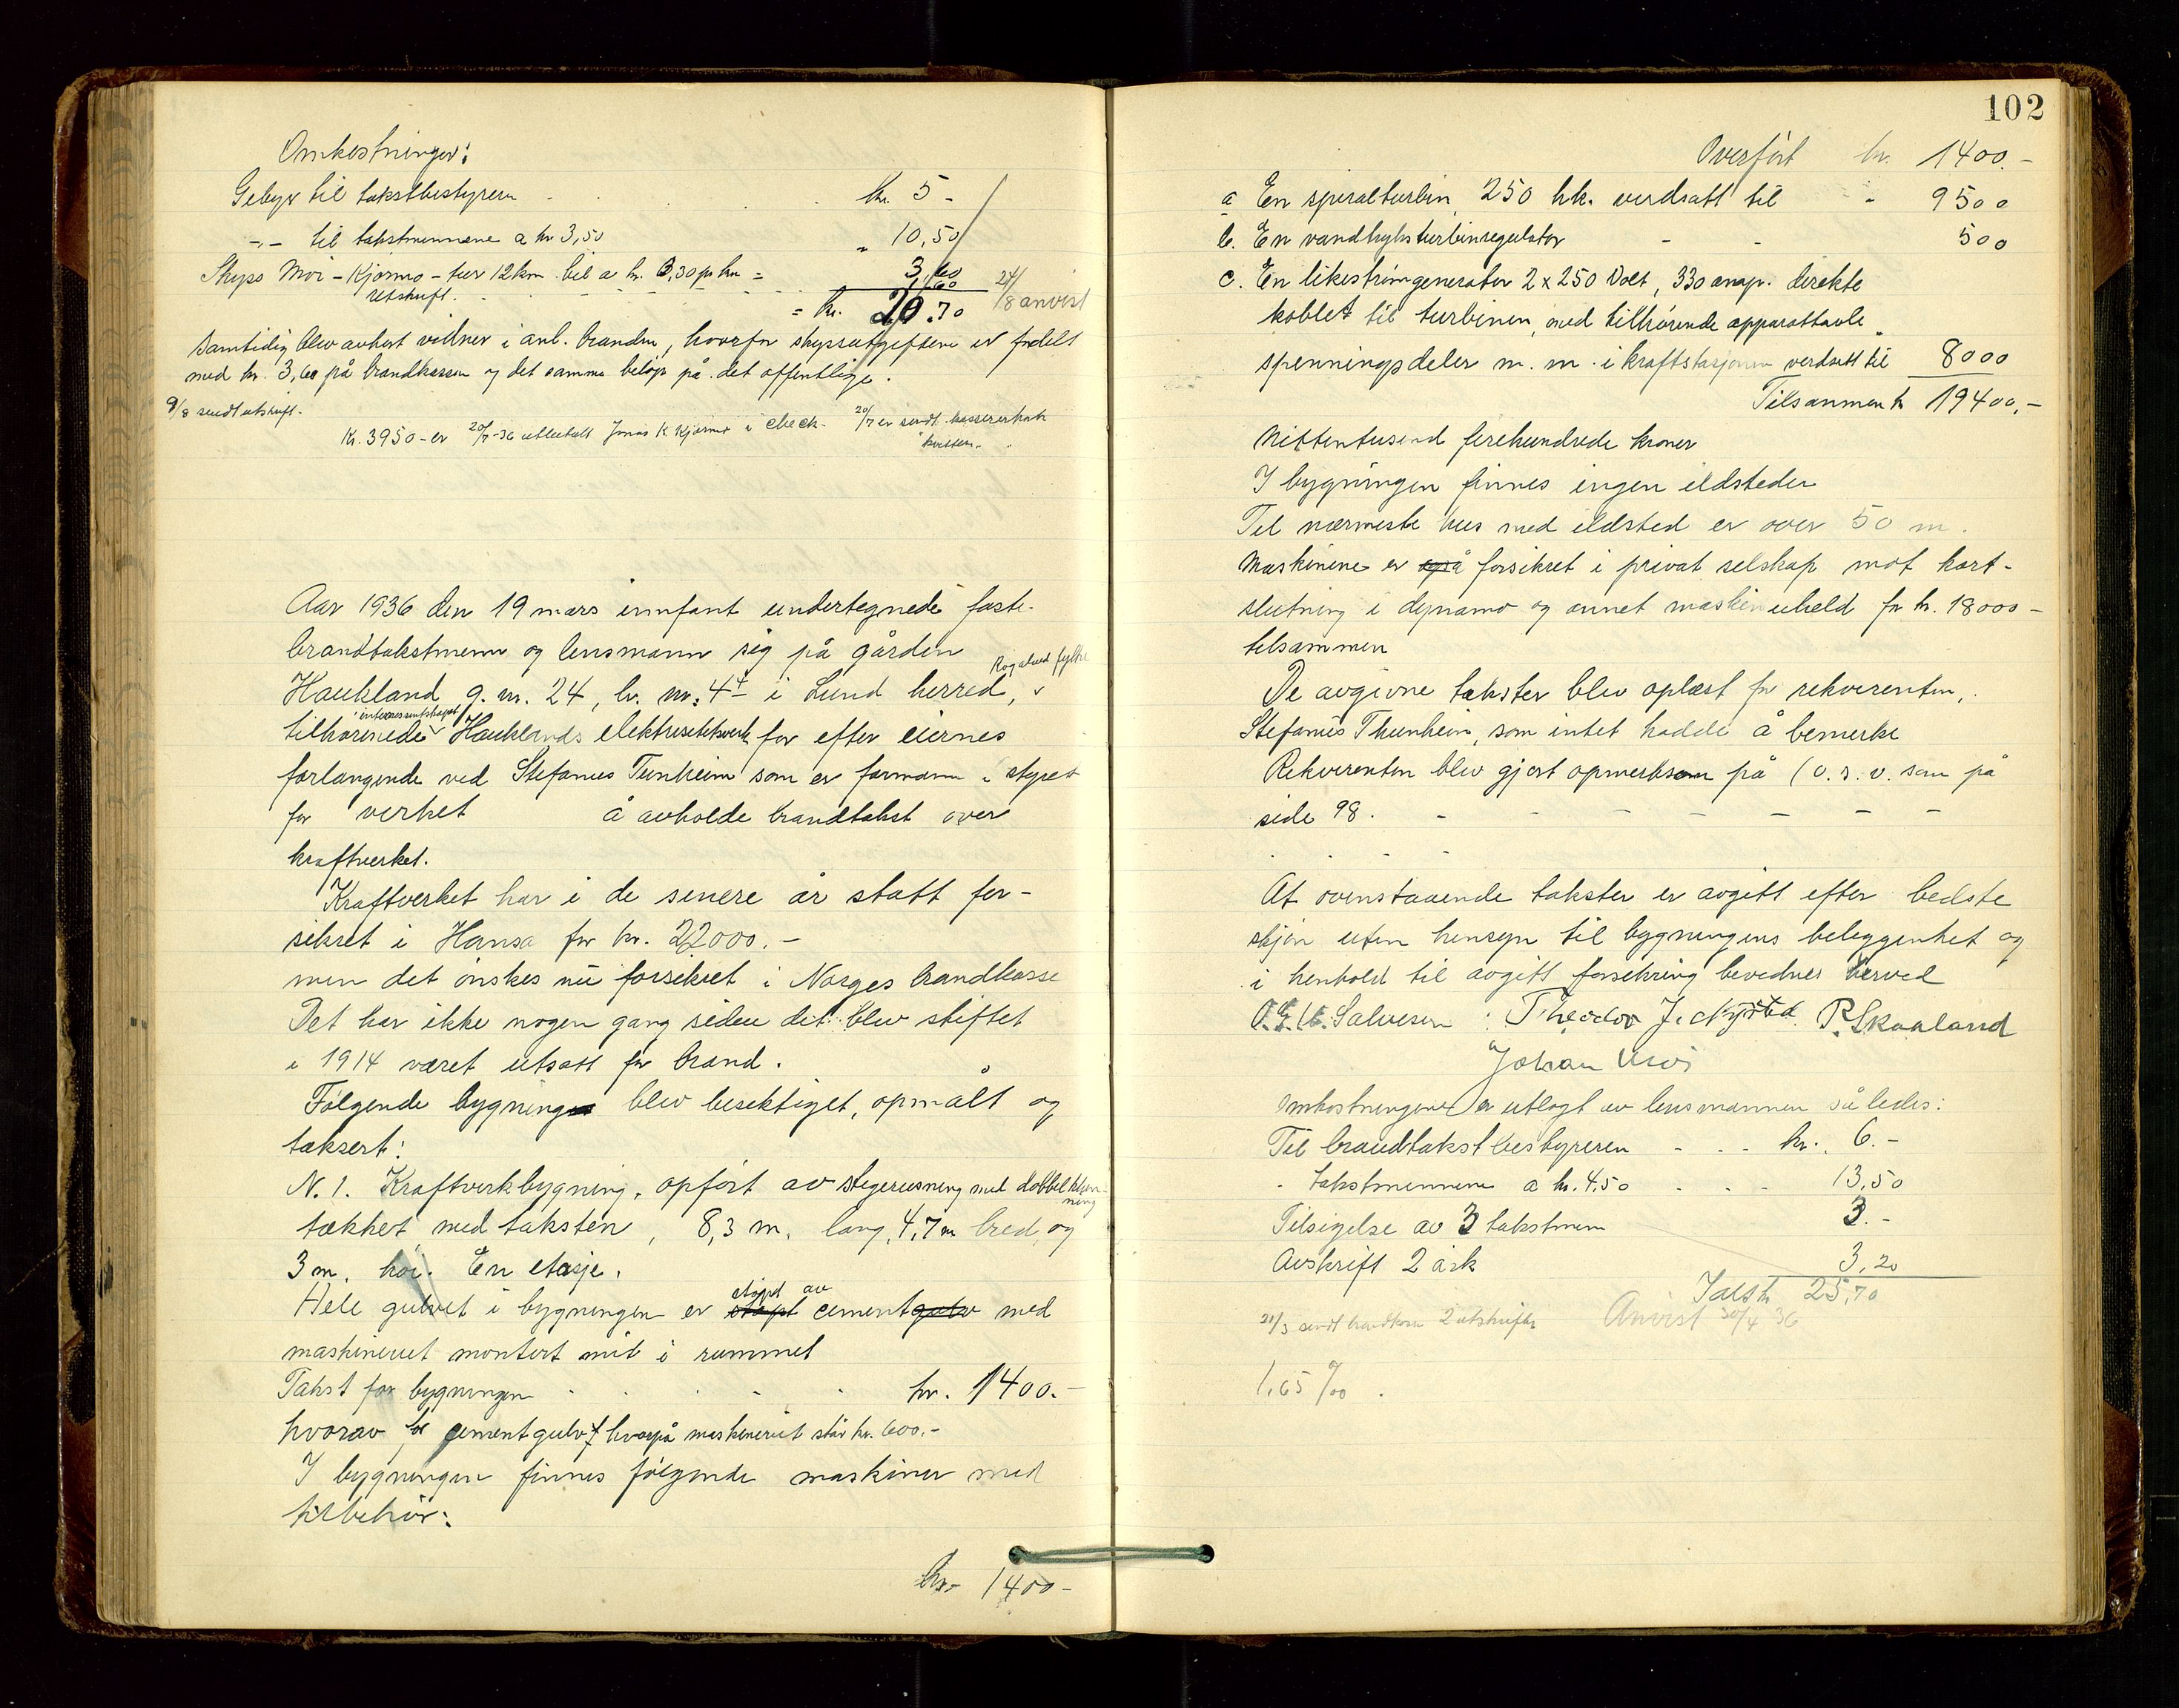 Omkostninger:
Gebyr til takstbestyreren kr. 5 -
-"- til takstmennene a kr 3,50 " 10,50
Skyss Moi - Kjørmo - tur 12 km. bil a kr. 0,30 pr km = 3,60
utskrift. 1,60
= Kr. 20.70 24/8 anvist
Samtidig blev avhørt vidner i anl. branden, hvorfor skyssutgiftene er fordelt
med kr. 3,60 på brandkassen og det samme beløp på det offentlige.
9/8 sendt utskrift.
Kr. 3950 - er 20/7-36 utbetalt Jonas K Kjørmo i check - 20/7 er sendt
Aar 1936 den 19 mars innfant undertegnede faste
brandtakstmenn og lensmann sig på gården
Haukland g. nr. 24, br. nr. 4 i Lund herred, Rogaland fylke
tilhørende interessentskapet Hauklands elektrisitetsverk for efter eiernes
forlangende ved Stefanus Tunheim som er formann i styret
for verket å avholde brandtakst over
kraftverket.
Kraftverket har i de senere år statt for-
sikret i Hansa for kr. 22000.-
men det ønskes nu forsikret i Norges brandkasse
Det har ikke nogen gang siden det blev stiftet
i 1914 været utsatt for brand.
Følgende bygning blev besiktiget, opmålt og
taksert:
N. 1. Kraftverkbygning, opført av stegreisning med dobbel klæd-
ning
tækket med taksten, 8,3 m. lang, 4,7 m bred og
3 m. høi. En etasje.
støpt av
Hele gulvet i bygningen er støpt cementgulv med
maskineriet montert mit i rummet
Takst for bygningen kr. 1400.-
hvorav for cementgulvet hvorpå maskineriet står kr. 600.-
I bygningen finnes følgende maskiner med
tilbehør:
kr. 1400-
102
Overført kr. 1400.-
a En spiralturbin, 250 hk. verdsatt til " 9500
b. En vandtryksturbinregulator - - 500
c. En likestrømgenerator 2 x 250 Volt, 330 amp. direkte
koblet til turbinen, med tilhørende apparattavle
spenningsdeler m. m. i kraftstasjonen verdsatt til 8000
Tilsammen kr 19400,-
Nittentusend firehundrede kroner
I bygningen finnes ingen ildsteder
Til nærmeste hus med ildsted er over 50 m.
Maskinene er også forsikret i privat selskap mot kort-
slutning i dynamo og annet maskinuheld for kr. 18000 -
tilsammen
De avgivne takster blev oplæst for rekvirenten,
Stefanus Thunheim, som intet hadde å bemerke
Rekvirenten blev gjort opmerksom på (o. s. v. som på
side 98. - - - - - - -
- - -
At ovenstaaende takster er avgitt efter bedste
skjøn uten hensyn til bygningens beliggenhet og
i henhold til avgitt forsikring bevidnes herved
O. E. U. Salvesen Theodor J. Nysted. P. Skaaland
Johan Moi
Omkostningene er utlagt av lensmannen således:
Til brandtakstbestyreren - - - kr. 6.-
- takstmennene a kr. 4,50 - - - 13,50
Tilsigelse av 3 takstmenn 3.-
Avskrift 2 ark 3,20
Ialt kr 25,70
21/3 sendt brandkassen 2 utskrifter Anvist 30/4 36
1,65 ‰.